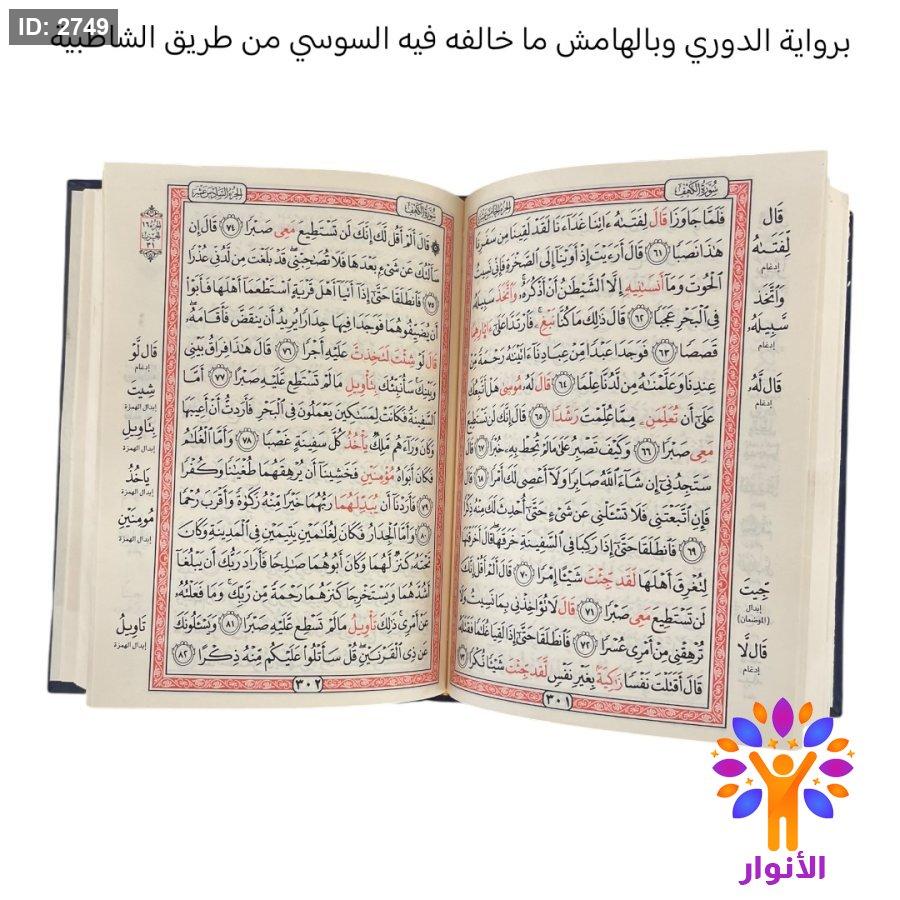 ID: 2749
برواية الدوري وبالهامش ما خالفه فيه السوسي من طريق الشاطبية
سُورَةُ الكَهْفِ
فَلَمَّا جَاوَزَا قَالَ لِفَتَىٰهُ ءَاتِنَا غَدَآءَنَا لَقَدْ لَقِينَا مِن سَفَرِنَا
هَٰذَا نَصَبًا ٦١ قَالَ أَرَءَيْتَ إِذْ أَوَيْنَآ إِلَى ٱلصَّخْرَةِ فَإِنِّي نَسِيتُ
ٱلْحُوتَ وَمَآ أَنسَىٰنِيهِ إِلَّا ٱلشَّيْطَٰنُ أَنْ أَذْكُرَهُۥ وَٱتَّخَذَ سَبِيلَهُۥ
فِي ٱلْبَحْرِ عَجَبًا ٦٢ قَالَ ذَٰلِكَ مَا كُنَّا نَبْغِۦ فَٱرْتَدَّا عَلَىٰٓ ءَاثَارِهِمَا
قَصَصًا ٦٣ فَوَجَدَا عَبْدًا مِّنْ عِبَادِنَآ ءَاتَيْنَٰهُ رَحْمَةً مِّنْ
عِندِنَا وَعَلَّمْنَٰهُ مِن لَّدُنَّا عِلْمًا ٦٤ قَالَ لَهُۥ مُوسَىٰ هَلْ أَتَّبِعُكَ
عَلَىٰٓ أَن تُعَلِّمَنِۦ مِمَّا عُلِّمْتَ رَشَدًا ٦٥ قَالَ إِنَّكَ لَن تَسْتَطِيعَ
مَعِي صَبْرًا ٦٦ وَكَيْفَ تَصْبِرُ عَلَىٰ مَا لَمْ تُحِطْ بِهِۦ خُبْرًا ٦٧ قَالَ
سَتَجِدُنِيٓ إِن شَآءَ ٱللَّهُ صَابِرًا وَلَآ أَعْصِي لَكَ أَمْرًا ٦٨ قَالَ
فَإِنِ ٱتَّبَعْتَنِي فَلَا تَسْـَٔلْنِي عَن شَيْءٍ حَتَّىٰٓ أُحْدِثَ لَكَ مِنْهُ ذِكْرًا
٦٩ فَٱنطَلَقَا حَتَّىٰٓ إِذَا رَكِبَا فِي ٱلسَّفِينَةِ خَرَقَهَا قَالَ أَخَرَقْتَهَا
لِتُغْرِقَ أَهْلَهَا لَقَدْ جِئْتَ شَيْـًٔا إِمْرًا ٧٠ قَالَ أَلَمْ أَقُلْ إِنَّكَ
لَن تَسْتَطِيعَ مَعِي صَبْرًا ٧١ قَالَ لَا تُؤَاخِذْنِي بِمَا نَسِيتُ وَلَا
تُرْهِقْنِي مِنْ أَمْرِي عُسْرًا ٧٢ فَٱنطَلَقَا حَتَّىٰٓ إِذَا لَقِيَا غُلَٰمًا فَقَتَلَهُۥ
قَالَ أَقَتَلْتَ نَفْسًا زَٰكِيَةً بِغَيْرِ نَفْسٍ لَّقَدْ جِئْتَ شَيْـًٔا نُّكْرًا ٧٣
٣٠١
قَال
لِّفَتَىٰهُ
إدغام
وَٱتَّخَذ
سَّبِيلَهُۥ
إدغام
قَال لَّهُۥ
إدغام
جِيتَ
إبدال
(الموضعان)
قَال لَّا
إدغام
الجُزْءُ السَّادِسَ عَشَرَ
سُورَةُ الكَهْفِ
قَالَ أَلَمْ أَقُل لَّكَ إِنَّكَ لَن تَسْتَطِيعَ مَعِي صَبْرًا ٧٤ قَالَ إِن
سَأَلْتُكَ عَن شَيْءٍ بَعْدَهَا فَلَا تُصَٰحِبْنِي قَدْ بَلَغْتَ مِن لَّدُنِّي عُذْرًا
٧٥ فَٱنطَلَقَا حَتَّىٰٓ إِذَآ أَتَيَآ أَهْلَ قَرْيَةٍ ٱسْتَطْعَمَآ أَهْلَهَا فَأَبَوْا
أَن يُضَيِّفُوهُمَا فَوَجَدَا فِيهَا جِدَارًا يُرِيدُ أَن يَنقَضَّ فَأَقَامَهُۥ
قَالَ لَوْ شِئْتَ لَتَخِذتَّ عَلَيْهِ أَجْرًا ٧٦ قَالَ هَٰذَا فِرَاقُ بَيْنِي
وَبَيْنِكَ سَأُنَبِّئُكَ بِتَأْوِيلِ مَا لَمْ تَسْتَطِع عَّلَيْهِ صَبْرًا ٧٧ أَمَّا
ٱلسَّفِينَةُ فَكَانَتْ لِمَسَٰكِينَ يَعْمَلُونَ فِي ٱلْبَحْرِ فَأَرَدتُّ أَنْ أَعِيبَهَا
وَكَانَ وَرَآءَهُم مَّلِكٌ يَأْخُذُ كُلَّ سَفِينَةٍ غَصْبًا ٧٨ وَأَمَّا ٱلْغُلَٰمُ
فَكَانَ أَبَوَاهُ مُؤْمِنَيْنِ فَخَشِينَآ أَن يُرْهِقَهُمَا طُغْيَٰنًا وَكُفْرًا
٧٩ فَأَرَدْنَآ أَن يُبَدِّلَهُمَا رَبُّهُمَا خَيْرًا مِّنْهُ زَكَوٰةً وَأَقْرَبَ رُحْمًا
٨٠ وَأَمَّا ٱلْجِدَارُ فَكَانَ لِغُلَٰمَيْنِ يَتِيمَيْنِ فِي ٱلْمَدِينَةِ وَكَانَ
تَحْتَهُۥ كَنزٌ لَّهُمَا وَكَانَ أَبُوهُمَا صَٰلِحًا فَأَرَادَ رَبُّكَ أَن يَبْلُغَآ
أَشُدَّهُمَا وَيَسْتَخْرِجَا كَنزَهُمَا رَحْمَةً مِّن رَّبِّكَ وَمَا فَعَلْتُهُۥ
عَنْ أَمْرِي ذَٰلِكَ تَأْوِيلُ مَا لَمْ تَسْطِع عَّلَيْهِ صَبْرًا ٨١ وَيَسْـَٔلُونَكَ
عَن ذِي ٱلْقَرْنَيْنِ قُلْ سَأَتْلُوا عَلَيْكُم مِّنْهُ ذِكْرًا ٨٢
٣٠٢
الجزء
١٦
الحزب
٣١
قَال لَّوْ
إدغام
شِيتَ
إبدال الهمزة
بِتَاوِيلِ
إبدال الهمزة
يَاخُذُ
إبدال الهمزة
مُومِنَيْنِ
إبدال الهمزة
تَاوِيلُ
إبدال الهمزة
الأنوار